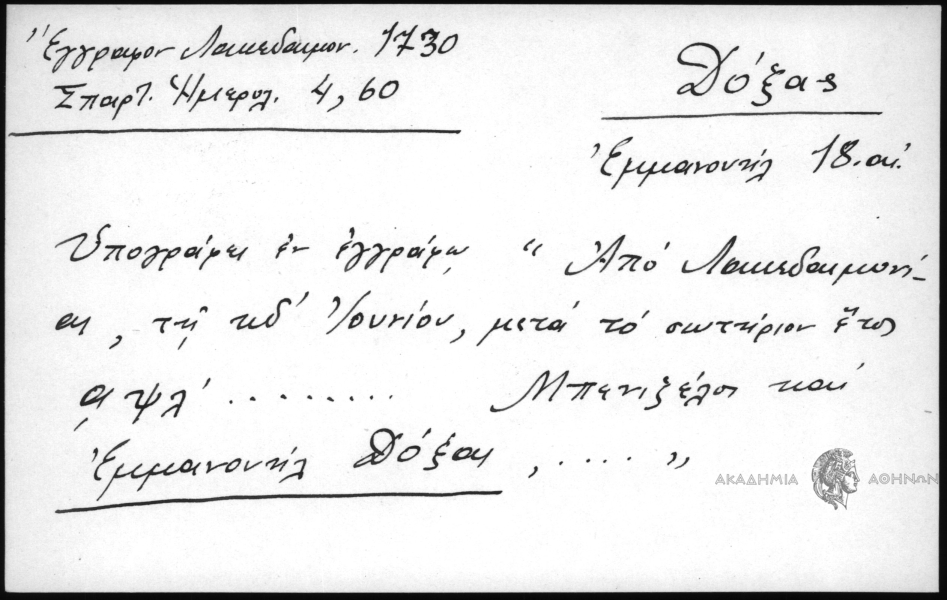 Ἔγγραφον Λακεδαιμον. 1730
Σπαρτ. Ἡμερολ. 4, 60
Δόξας
Ἐμμανουήλ 18. αἰ.
Ὑπογράφει ἐν ἐγγράφῳ " Ἀπό Λακεδαιμονί-
ας, τῇ κδ' Ἰουνίου, μετά τό σωτήριον ἔτος
͵αψλ' ......... Μπενιζέλος καί
Ἐμμανουήλ Δόξας, .... "
ΑΚΑΔΗΜΙΑ ΑΘΗΝΩΝ